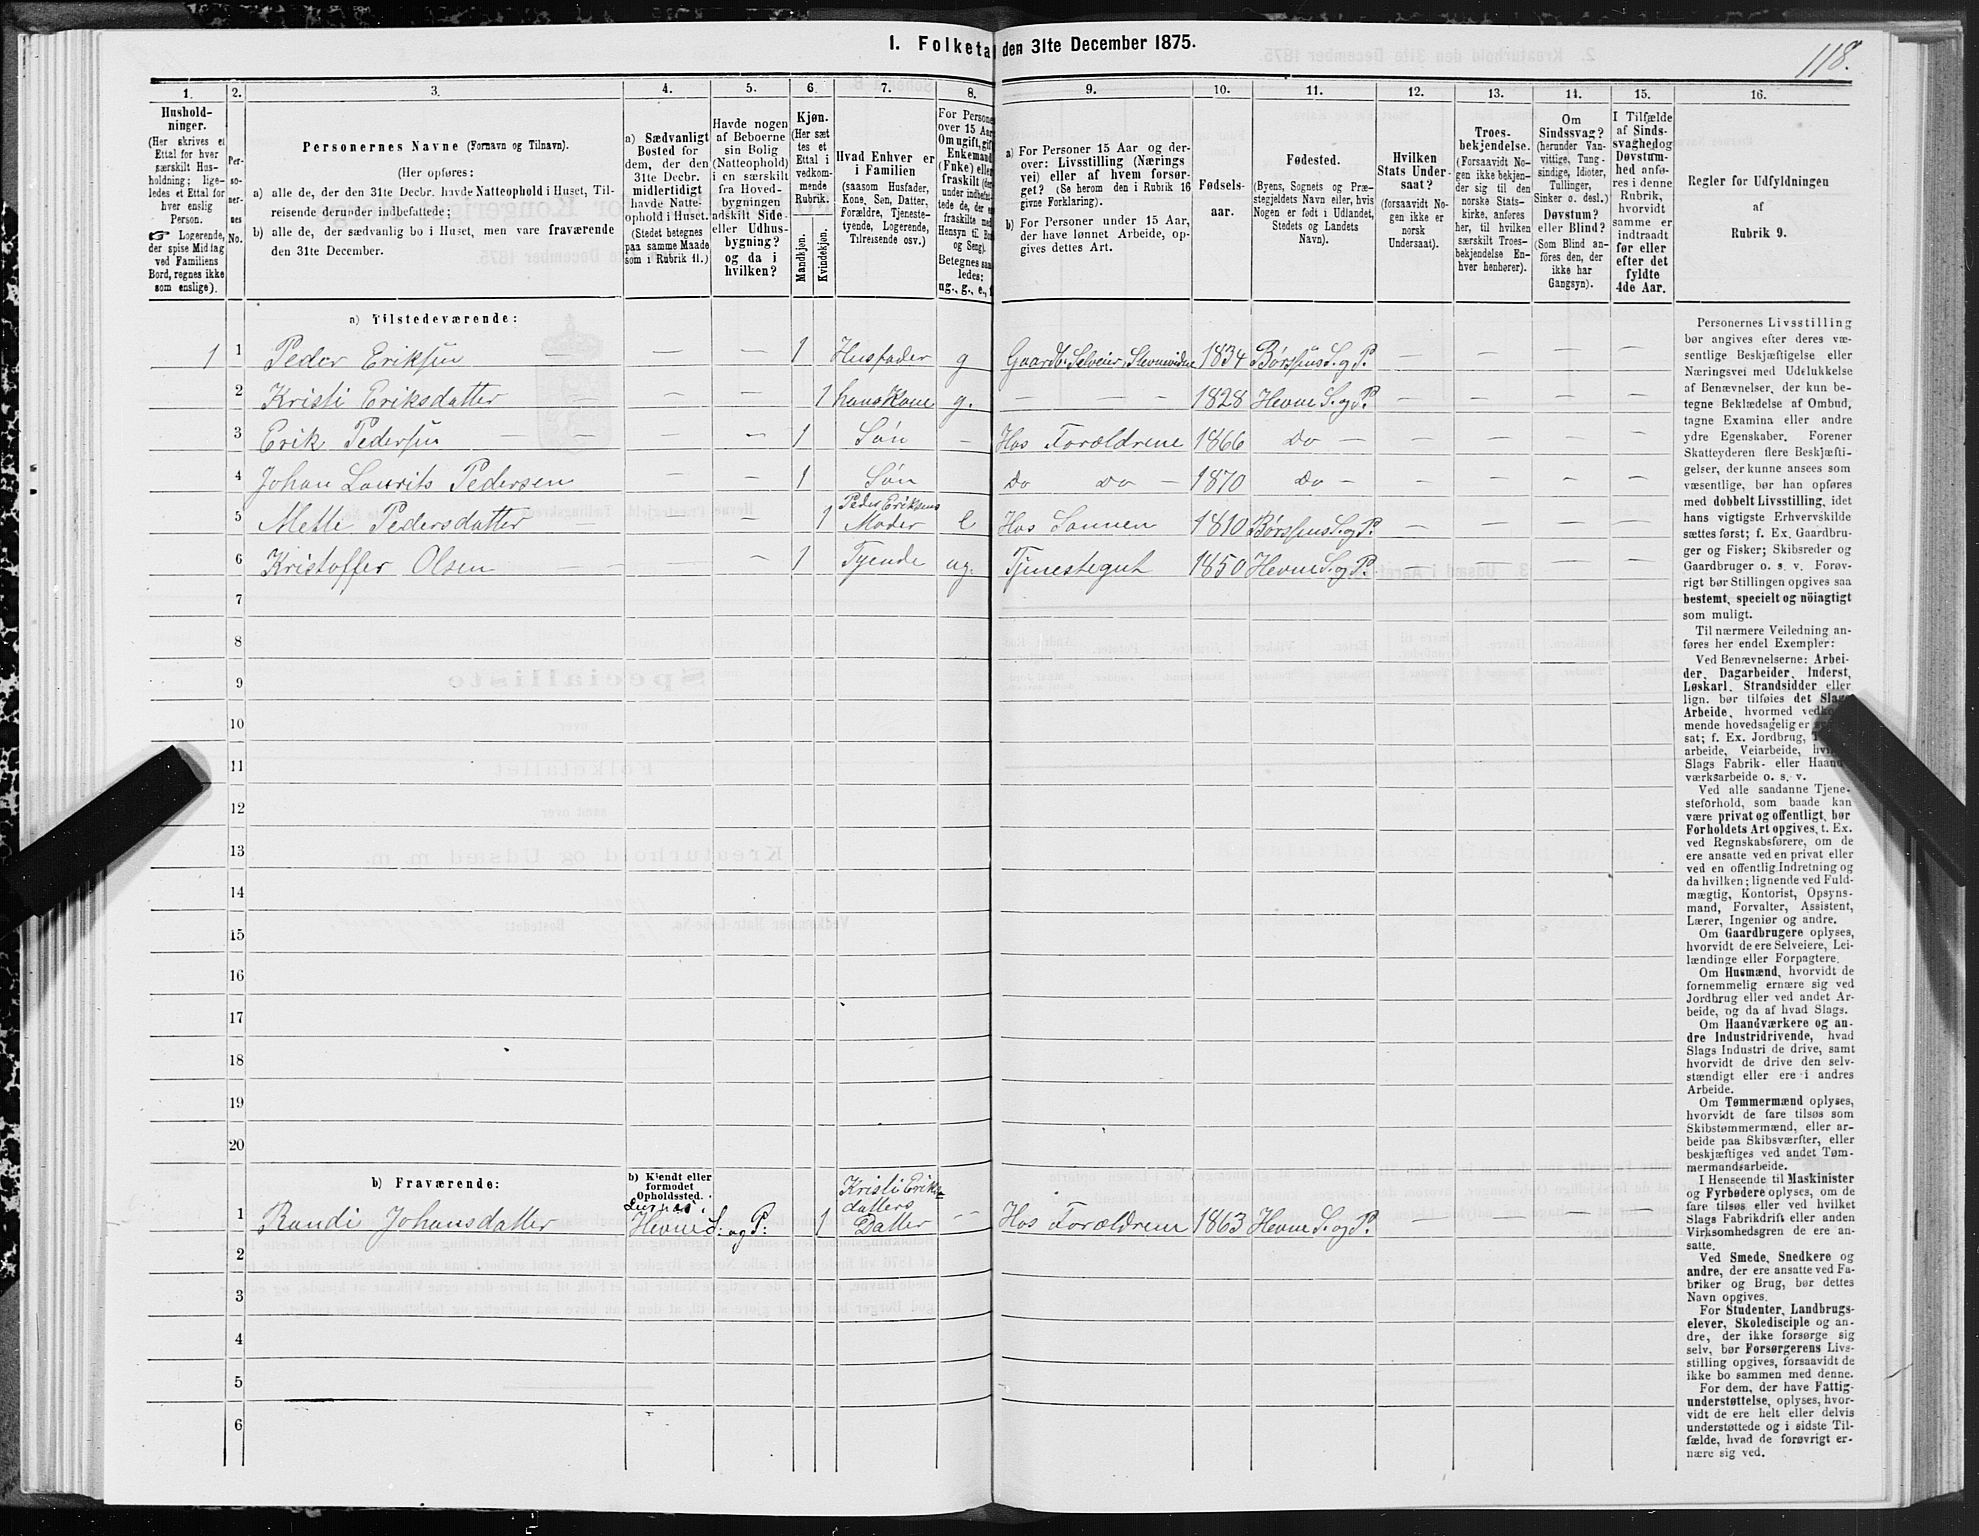 1. Folketal den 31te December 1875.
118.
1.
Hushold-
ninger.
(Her skrives et
Ettal for hver
særskilt Hus-
holdning; lige-
ledes et Ettal for
hver enslig
Person.
☞ Logerende,
der spise Middag
ved Familiens
Bord, regnes ikke
som enslige).
2.
Per-
so-
ner-
nes
No.
3.
Personernes Navne (Fornavn og Tilnavn).
(Her opføres:
a) alle de, der den 31te Decbr. havde Natteophold i Huset, Til-
reisende derunder indbefattede;
b) alle de, der sædvanlig bo i Huset, men vare fraværende
den 31te December.
4.
a) Sædvanligt
Bosted for
dem, der den
31te Decbr.
midlertidigt
havde Natte-
ophold i Huset.
(Stedet betegnes
paa samme Maade
som i Rubrik 11.)
5.
Havde nogen
af Beboerne
sin Bolig
(Natteophold)
i en særskilt
fra Hoved-
bygningen
adskilt Side-
eller Udhus-
bygning?
og da i
hvilken?
6.
Kjøn.
(Her sæt-
tes et
Ettal i
vedkom-
mende
Rubrik.
Mandkjøn.
Kvindekjøn.
7.
Hvad Enhver er
i Familien
(saasom Husfader,
Kone, Søn, Datter,
Forældre, Tjeneste-
tyende, Logerende,
Tilreisende osv.)
8.
For Persone
over 15 Aar
Om ugift, gift
Enkemand
(Enke) eller
fraskilt (der
under indbefat-
tede de, der er
fraskilte med
Hensyn til Bo
og Seng).
Betegnes saa
ledes:
ug., g., e., f
9.
a) For Personer 15 Aar og der-
over: Livsstilling (Nærings
vei) eller af hvem forsør-
get? (Se herom den i Rubrik 16
givne Forklaring).
b) For Personer under 15 Aar,
der have lønnet Arbeide, op-
gives dettes Art.
10.
Fødsels-
aar.
11.
Fødested.
(Byens, Sognets og Præ-
stegjeldets Navn eller, hvis
Nogen er født i Udlandet,
Stedets og Landets
Navn).
12.
Hvilken
Stats Under-
saat?
(forsaavidt No-
gen ikke er
norsk
Undersaat).
13.
Troes-
bekjendelse.
(Forsaavidt No-
gen ikke bekjen-
der sig til den
norske Stats-
kirke, anføres
her, til hvilken
særskilt Troes-
bekjendelse En-
hver henhører).
14.
Om
Sindssvag?
(herunder Van-
vittige, Tung-
sindige, Idioter,
Tullinger,
Sinker o. desl.)
Døvstum?
eller Blind?
(Som Blind an-
föres den, der
ikke har
Gangsyn).
15.
I Tilfælde
af Sinds-
svaghed og
Døvstum-
hed anfø-
res i denne
Rubrik,
hvorvidt
samme er
indtraadt
før eller
efter det
fyldte
4de Aar.
16.
Regler for Udfyldningen
af
Rubrik 9.
a) Tilstedeværende:
1 1 Peder Eriksen — — — 1 Husfader g Gaardb. Selveier, Stevnevidne 1834 Børssens S. og P. — — — —
2 Kristi Eriksdatter — — — 1 hans Kone g. — — — 1828 Hevne S. og P. — — — —
3 Erik Pedersen — — — — 1 Søn – Hos Forældrene 1866 Do — — — — —
4 Johan Laurits Pedersen — — 1 Søn Do Do – 1870 Do — — — — —
5 Mette Pedersdatter — — — 1 Peder Eriksens
Moder e Hos Sønnen 1810 Børssens S. og P. — — — —
6 Kristoffer Olsen — — — — 1 Tyende ug. Tjenestegut 1850 Hevne S. og P. — — — —
7
8
9
10
11
12
13
14
15
16
17
18
19
20
b) Fraværende:
b) Kjendt eller
formodet
Opholdssted.
1 Randi Johansdatter Hevne S: og P: 1 Kristi Eriks-
datters
Datter — Hos Forældrene 1863 Hevne S. og P. — — — —
2
3
4
5
6
Personernes Livsstilling
bør angives efter deres væ-
sentlige Beskjæftigelse eller
Næringsvei med Udelukkelse
af Benævnelser, der kun be-
tegne Beklædelse af Ombud,
tagne Examina eller andre
ydre Egenskaber. Forener
Skatteyderen flere Beskjæfti-
gelser, der kunne ansees som
væsentlige, bør han opføres
med dobbelt Livsstilling, idet
hans vigtigste Erhvervskilde
sættes først; f. Ex. Gaardbru-
ger og Fisker; Skibsreder og
Gaardbruger o. s. v. Forøv-
rigt bør Stillingen opgives saa
bestemt, specielt og nöiagtigt
som muligt.
Til nærmere Veiledning an-
føres her endel Exempler:
Ved Benævnelserne: Arbei-
der, Dagarbeider, Inderst,
Løskarl, Strandsidder eller
lign. bør tilføies det Slags
Arbeide, hvormed vedkom-
mende hovedsagelig er
sat; f. Ex. Jordbrug,
arbeide, Veiarbeide,
Slags Fabrik- eller Haand-
værksarbeide o. s. v.
Ved alle saadanne Tjene-
steforhold, som baade kan
være privat og offentligt, bør
Forholdets Art opgives, t. Ex.
ved Regnskabsførere, om de
ere ansatte ved en privat eller
ved en offentlig Indretning og
da hvilken; lignende ved Fuld-
mægtig, Kontorist, Opsyns-
mand, Forvalter, Assistent,
Lærer, Ingeniør og andre.
Om Gaardbrugere oplyses,
hvorvidt de ere Selveiere, Lei-
lændinge eller Forpagtere.
Om Husmænd, hvorvidt de
fornemmelig ernære sig ved
Jordbrug eller ved andet Ar-
beide, og da af hvad Slags.
Om Haandværkere og an-
dre Industridrivende, hvad
Slags Industri de drive, samt
hvorvidt de drive den selv-
stændigt eller ere i andres
Arbeide.
Om Tømmermænd oplyses,
hvorvidt de fare tilsøs som
Skibstømmermænd, eller ar-
beide paa Skibsværfter, eller
beskjæftiges ved andet Tøm-
mermandsarbeide.
I Henseende til Maskinister
og Fyrbødere oplyses, om de
fare tilsøs eller ved hvilket
Slags Fabrikdrift eller anden
Virksomhedsgren de ere an-
satte.
Ved Smede, Snedkere og
andre, der ere ansatte ved Fa-
briker og Brug, bør dettes
Navn opgives.
For Studenter, Landbrugs-
elever, Skoledisciple og an-
dre, der ikke forsørge sig
selv, bør Forsørgerens Livs-
stilling opgives, forsaavidt de
ikke bo sammen med denne.
For dem, der have Fattig-
understøttelse, oplyses, hvor-
vidt de ere helt eller delvis
understøttede og i sidste Til-
fælde, hvad de forøvrigt er-
nære sig ved.